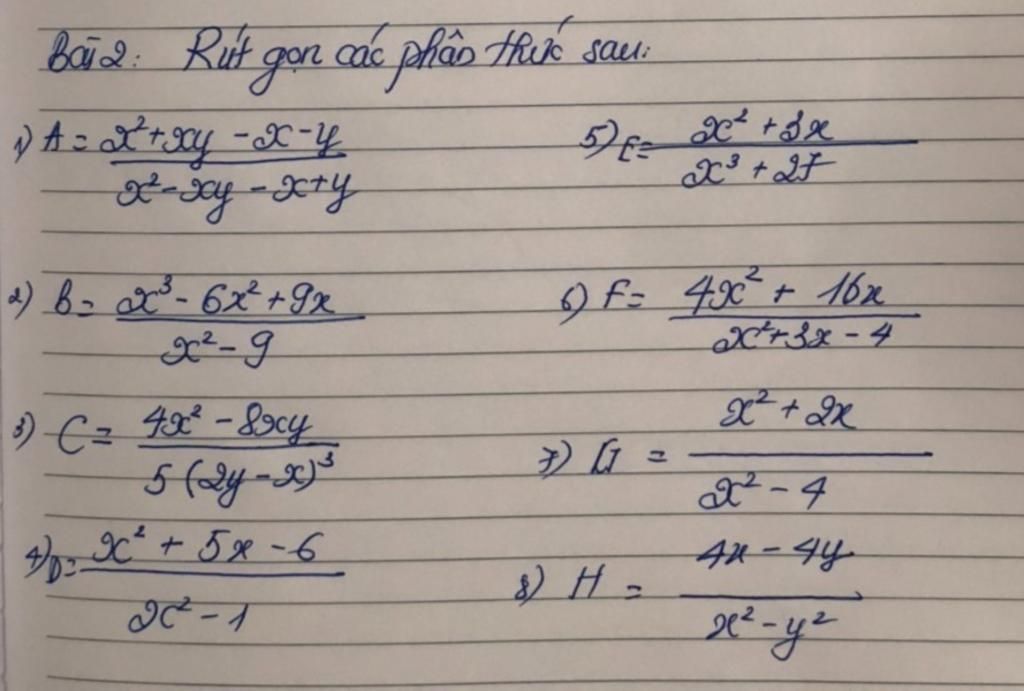 Bài 2: Rút gọn các phân thức sau:
1) A = \frac{x^2 + xy - x - y}{x^2 - xy - x + y}
5) E = \frac{x^2 + 3x}{x^3 + 27}
2) B = \frac{x^3 - 6x^2 + 9x}{x^2 - 9}
6) F = \frac{4x^2 + 16x}{x^2 + 3x - 4}
3) C = \frac{4x^2 - 8xy}{5(2y - x)^3}
7) G = \frac{x^2 + 2x}{x^2 - 4}
4) D = \frac{x^2 + 5x - 6}{x^2 - 1}
8) H = \frac{4x - 4y}{x^2 - y^2}